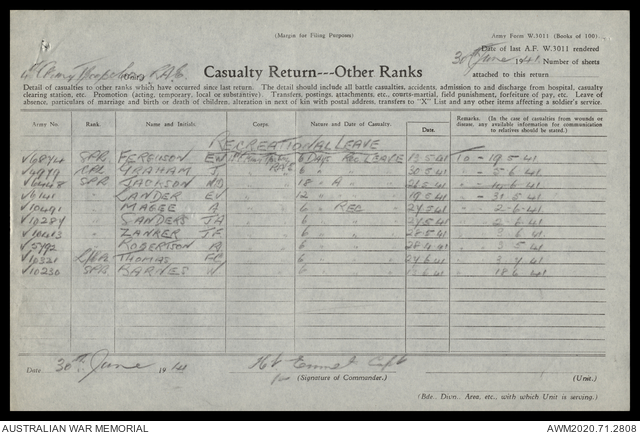 (Margin for Filing Purposes)
Army Form W.3011 (Books of 100)
Date of last A.F. W.3011 rendered
30 June 1941 Number of sheets
attached to this return
Army Troops R.A.E.
Casualty Return---Other Ranks
Detail of casualties to other ranks which have occurred since last return. The detail should include all battle casualties, accidents, admission to and discharge from hospital, casualty
clearing station, etc. Promotion (acting, temporary, local or substantive). Transfers, postings, attachments, etc., courts-martial, field punishment, forfeiture of pay, etc. Leave of
absence, particulars of marriage and birth or death of children, alteration in next of kin with postal address, transfers to "X" List and any other items affecting a soldier's service.
Army No. Rank. Name and Initials. Corps. Nature and Date of Casualty. Date. Remarks. (In case of casualties from wounds or disease, any available information for communication to relatives should be stated.)
RECREATIONAL LEAVE
V6874 SPR FERGUSON 6 DAYS REC LEAVE 13.5.41 TO - 19.5.41
CPL GRAHAM J " 6 " 30.5.41 " 5.6.41
SPR JACKSON " 18 " A "
V6141 " LANDER EV " 12 " 19.5.41 " 31.5.41
V10491 " MAGEE A " 6 " REC 27.5.41 " 2.6.41
V10284 " SANDERS JA " 6 " 27.5.41 " 2.6.41
V10413 " ZANKER JF " 6 " 28.5.41 " 3.6.41
" ROBERTSON A " 6 " 28.4.41 " 3.5.41
V10321 L/CPL THOMAS FC " 6 " 27.6.41 " 3.7.41
V10230 SPR KARNES W " 6 " " 18.6.41
Date 30th June 1941
Capt
(Signature of Commander.)
(Unit.)
(Bde., Divn., Area, etc., with which Unit is serving.)
AUSTRALIAN WAR MEMORIAL
AWM2020.71.2808